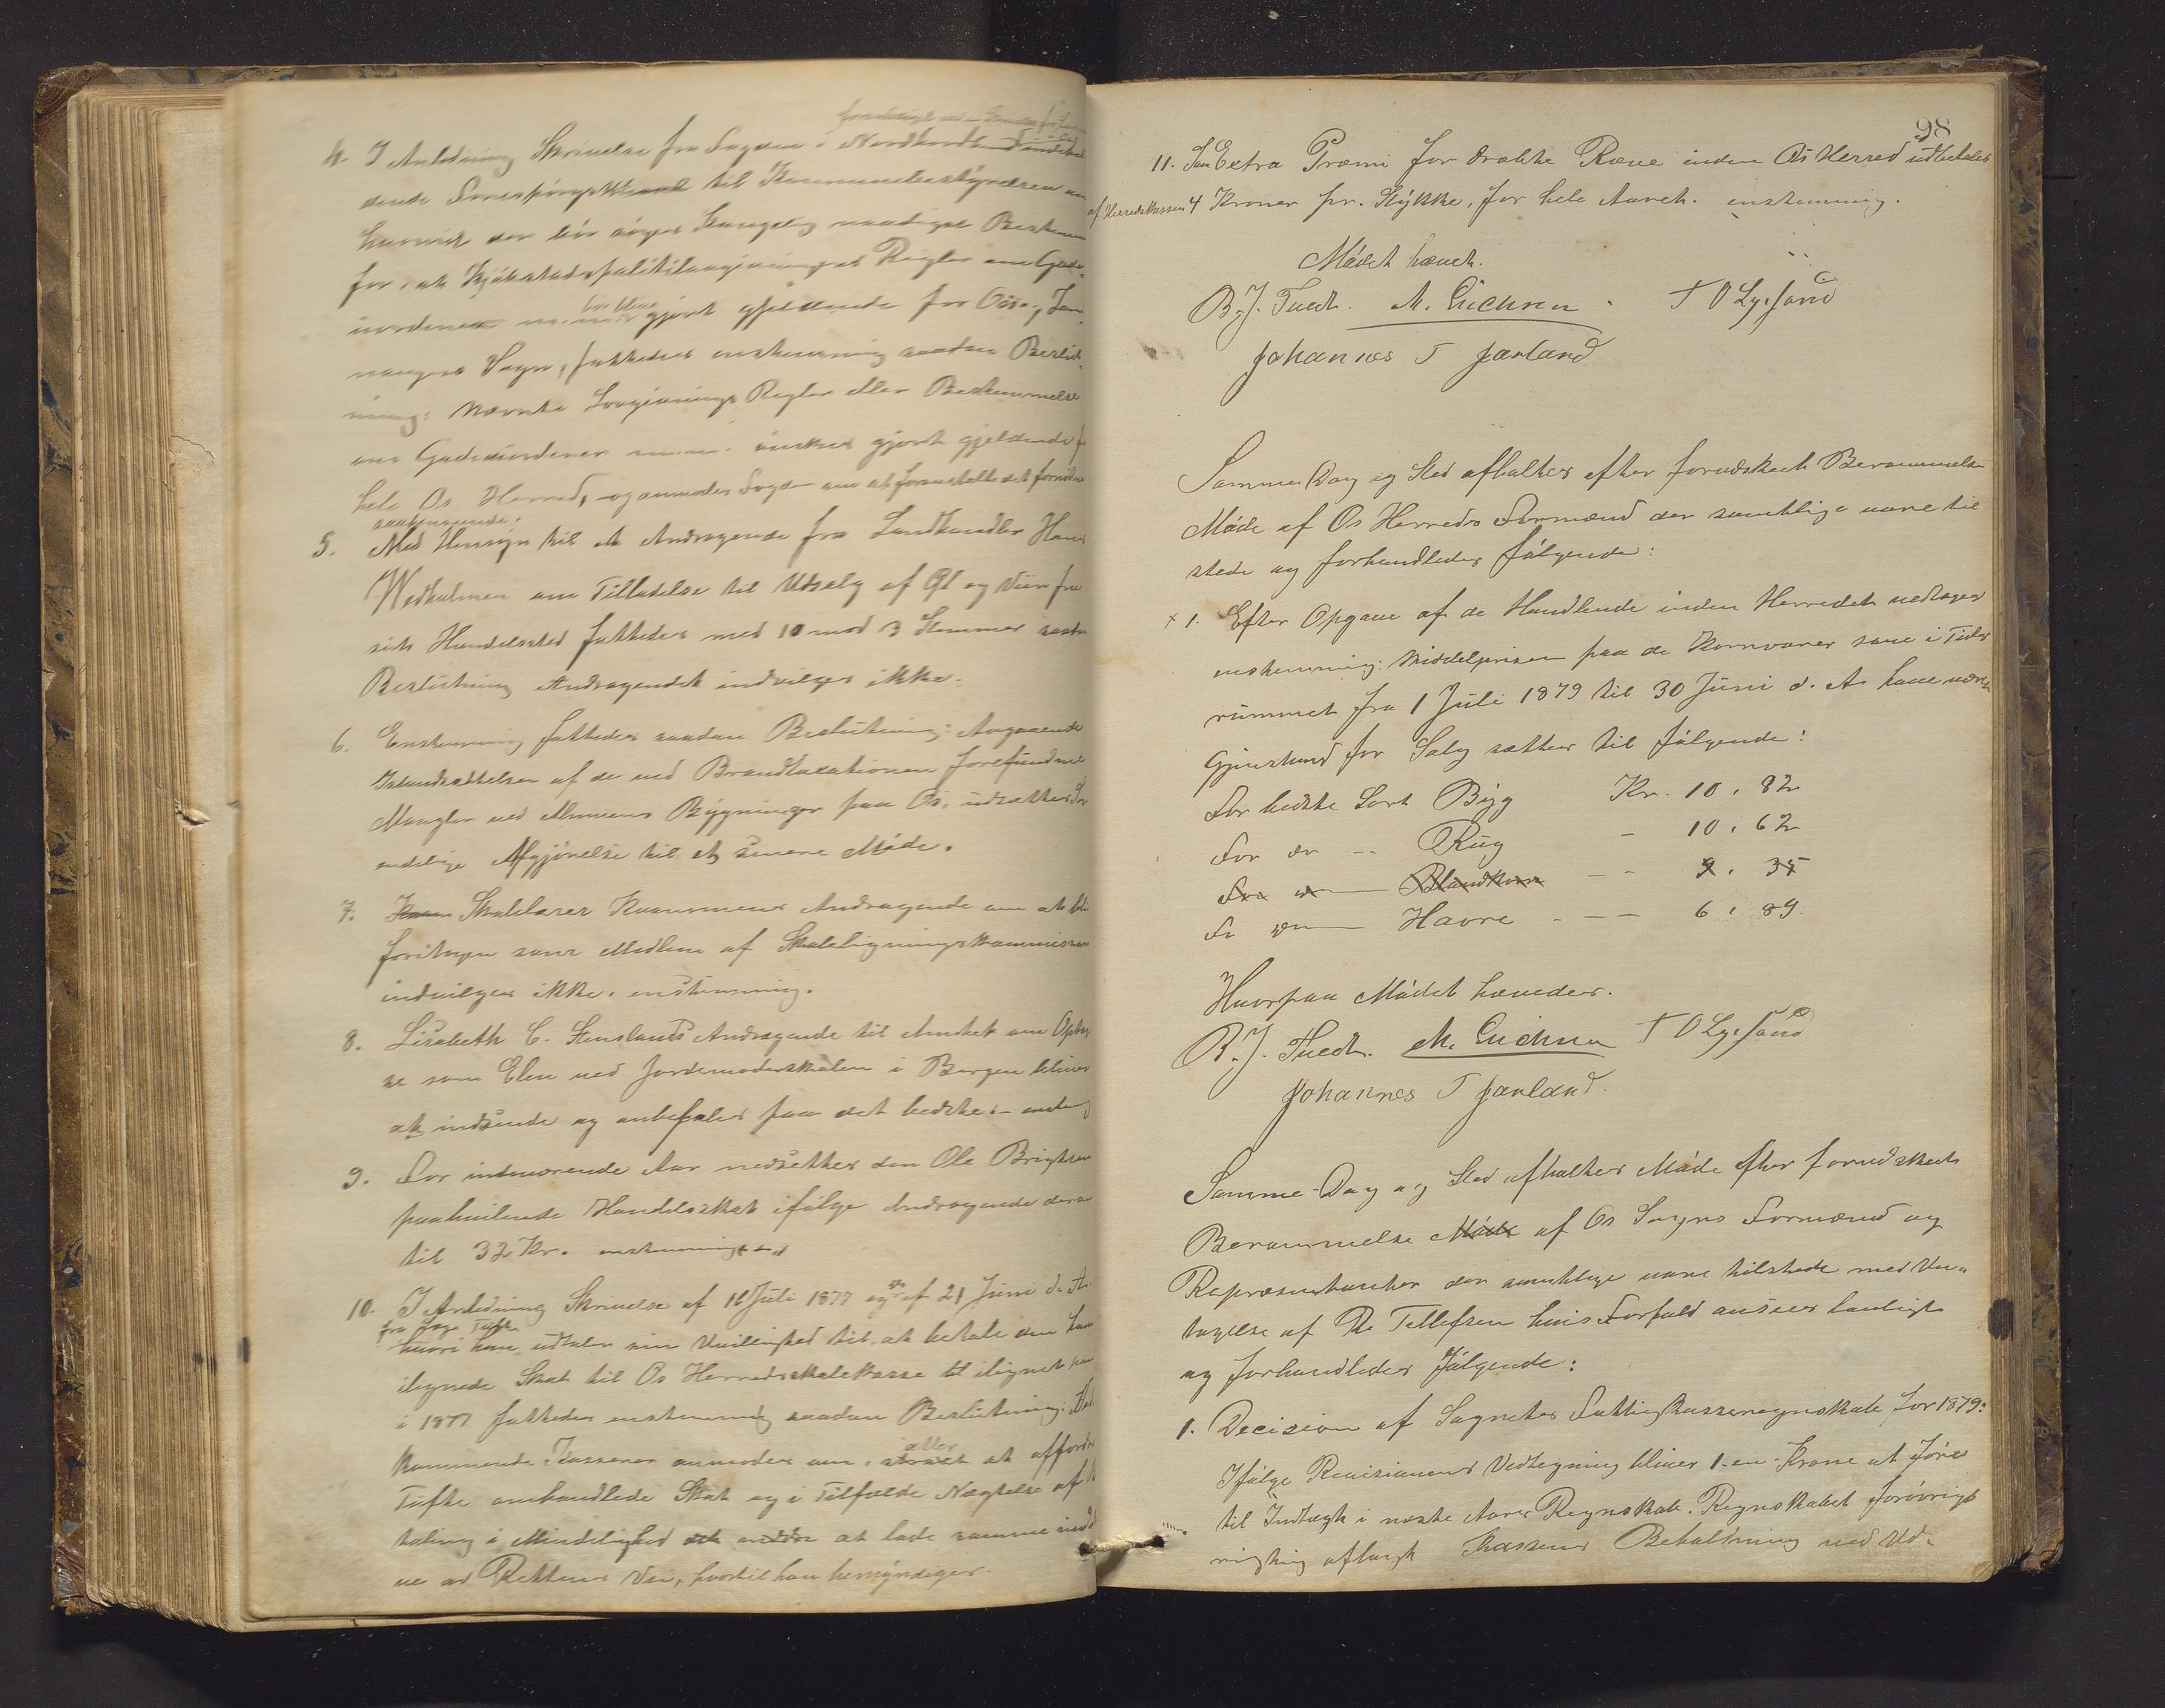 4. I Anledning Skrivelse fra Fogden i Nordhordland
dende Forespørgsel til Kommunebestyrelsen om
hvorvidt der bør søges Kongelig naadigst Bestemm
for at Kjøbstadspolitilovgivningens Regler om Gade
uordener m.m. bør blive gjort gjeldende for Os
Sogn, fattedes enstemmig saadan Beslut
ning: Nævnte Lovgivnings Regler eller Bestemmelse
om Gadeuordener m.m. ønskes gjort gjeldende f
hele Os Herred, og anmodes Fogden om at foranstalte det fornødne
saahenseende.
5. Med Hensyn til et Andragende fra Landhandler Hans
Wedholmen om Tilladelse til Udsalg af Øl og Viin fra
sit Handelssted fattedes med 10 mod 3 Stemmer saadan
Beslutning Andragendet indvilges ikke.
6. Enstemmig fattedes saadan Beslutning: Angaaende
Istandsættelsen af de ved Brandtaxationen forefundne
Mangler ved Almuens Bygninger paa Os, udsættes den
endelige Afgjørelse til et senere Møde.
7. Skolelærer Andragende om at bli
foretagen som Medlem af Skoleligningskommissionen
indvilges ikke. enstemmig.
8. Lisabeth C. Stenslands Andragende til Amtet om Optag
se som Elev ved Jordemoderskolen i Bergen bliver
at indsende og anbefales paa det bedste. - enstemmig
9. For indeværende Aar nedsettes den Ole Brigtsen
paahvilende Handelsskat ifølge Andragende derom
til 32 Kr. enstemmig
10. I Anledning Skrivelse af 16 Juli 1877 og af 21 Juni d. A.
fra Tufte
hvori han udtaler sin Uvillighed til at betale den ham
ilignede Skat til Os Herredsskolekasse ilignet
i 1877 fattedes enstemmig saadan Beslutning: Ved
kommende Kasserer anmodes om atter at affordre
Tufte omhandlede Skat og i Tilfælde Nægtelse af Be
taling i Mindelighed at lade samme indd
ve ad Rettens Vei, hvortil han bemyndiges.
98
11. Som Extra Præmi for dræbte Ræve inden Os Herred udbetales
af Herredskassen 4 Kroner pr. Stykke, for hele Aaret. enstemmig.
Mødet hævet.
B. J. Tuedt. M. Erichsen T O Lysesand
Johannes T Jarland
Samme Dag og Sted afholdtes efter forudskeet Berammelse
Møde af Os Herreds Formænd der samtlige vare til
stede og forhandledes følgende:
x 1. Efter Opgave af de Handlende inden Herredet vedtoges
enstemmig: Middelprisen paa de Kornvarer som i Tids
rummet fra 1 Juli 1879 til 30 Juni d. A. have været
Gjenstand for Salg sættes til følgende:
For bedste Sort Byg Kr. 10, 82
For do -- Rug - 10, 62
For do Blandkorn - - 9, 35
For do Havre - - - 6, 89
Hvorpaa Mødet hævedes.
B. J. Tuedt. M. Erichsen T O Lysesand
Johannes T Jarland.
Samme Dag og Sted afholdtes Møde efter forudskeet
Berammelse Møde af Os Sogns Formænd og
Repræsentanter der samtlige vare tilstede med Und
tagelse af Tellefsen hvis Forfald ansees lovligt
og forhandledes følgende:
1. Decision af Sognets Fattigkasseregnskab for 1879:
Ifølge Revisionens Vedtegning bliver 1. en Krone at føre
til Indtægt i næste Aars Regnskab. Regnskabet forøvrigt
rigtig aflagt Kassens Beholdning ved Ud-